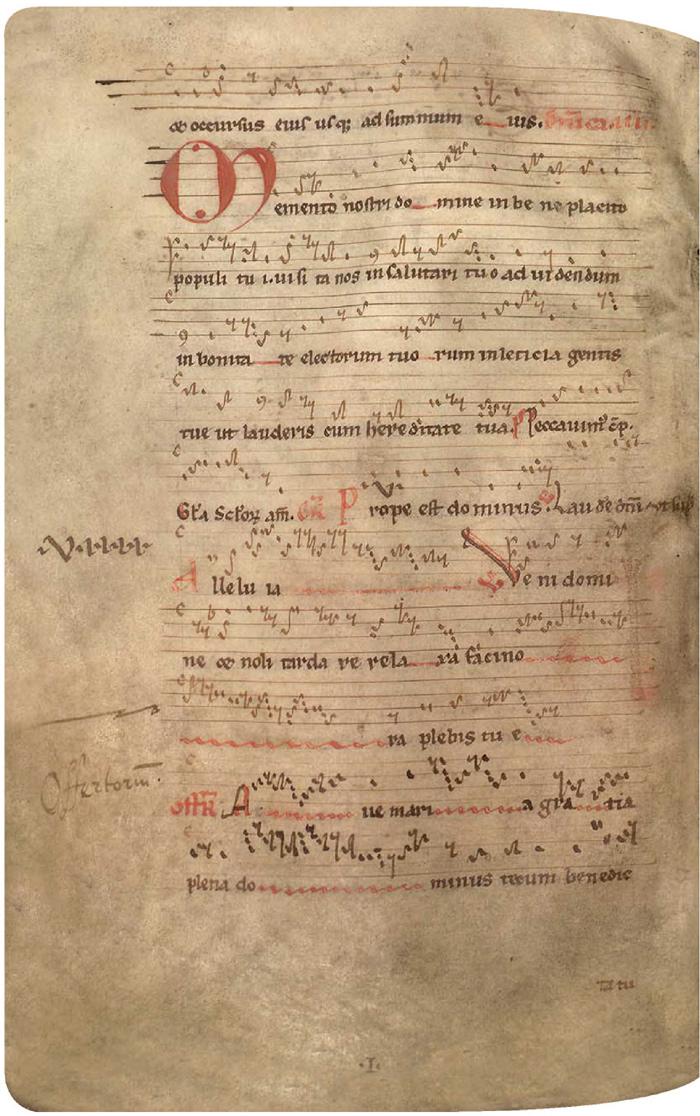 & occursus eius usq; ad summum e uis.
Memento nostri domine in bene placito
populi tui. uisita nos in salutari tuo ad uidendum
in bonitate electorum tuorum in leticia gentis
tue ut lauderis cum hereditate tua. Peccauim9 cũ p.
Gła scłoꝝ am̃. Prope est dominus. Laude dñi
Alleluia Veni domi
ne & noli tardare relaxa facino
ra plebis tue
Offertorium̅.
offr̃ Aue maria gratia
plena dominus tecum benedic
ta tu
.I.